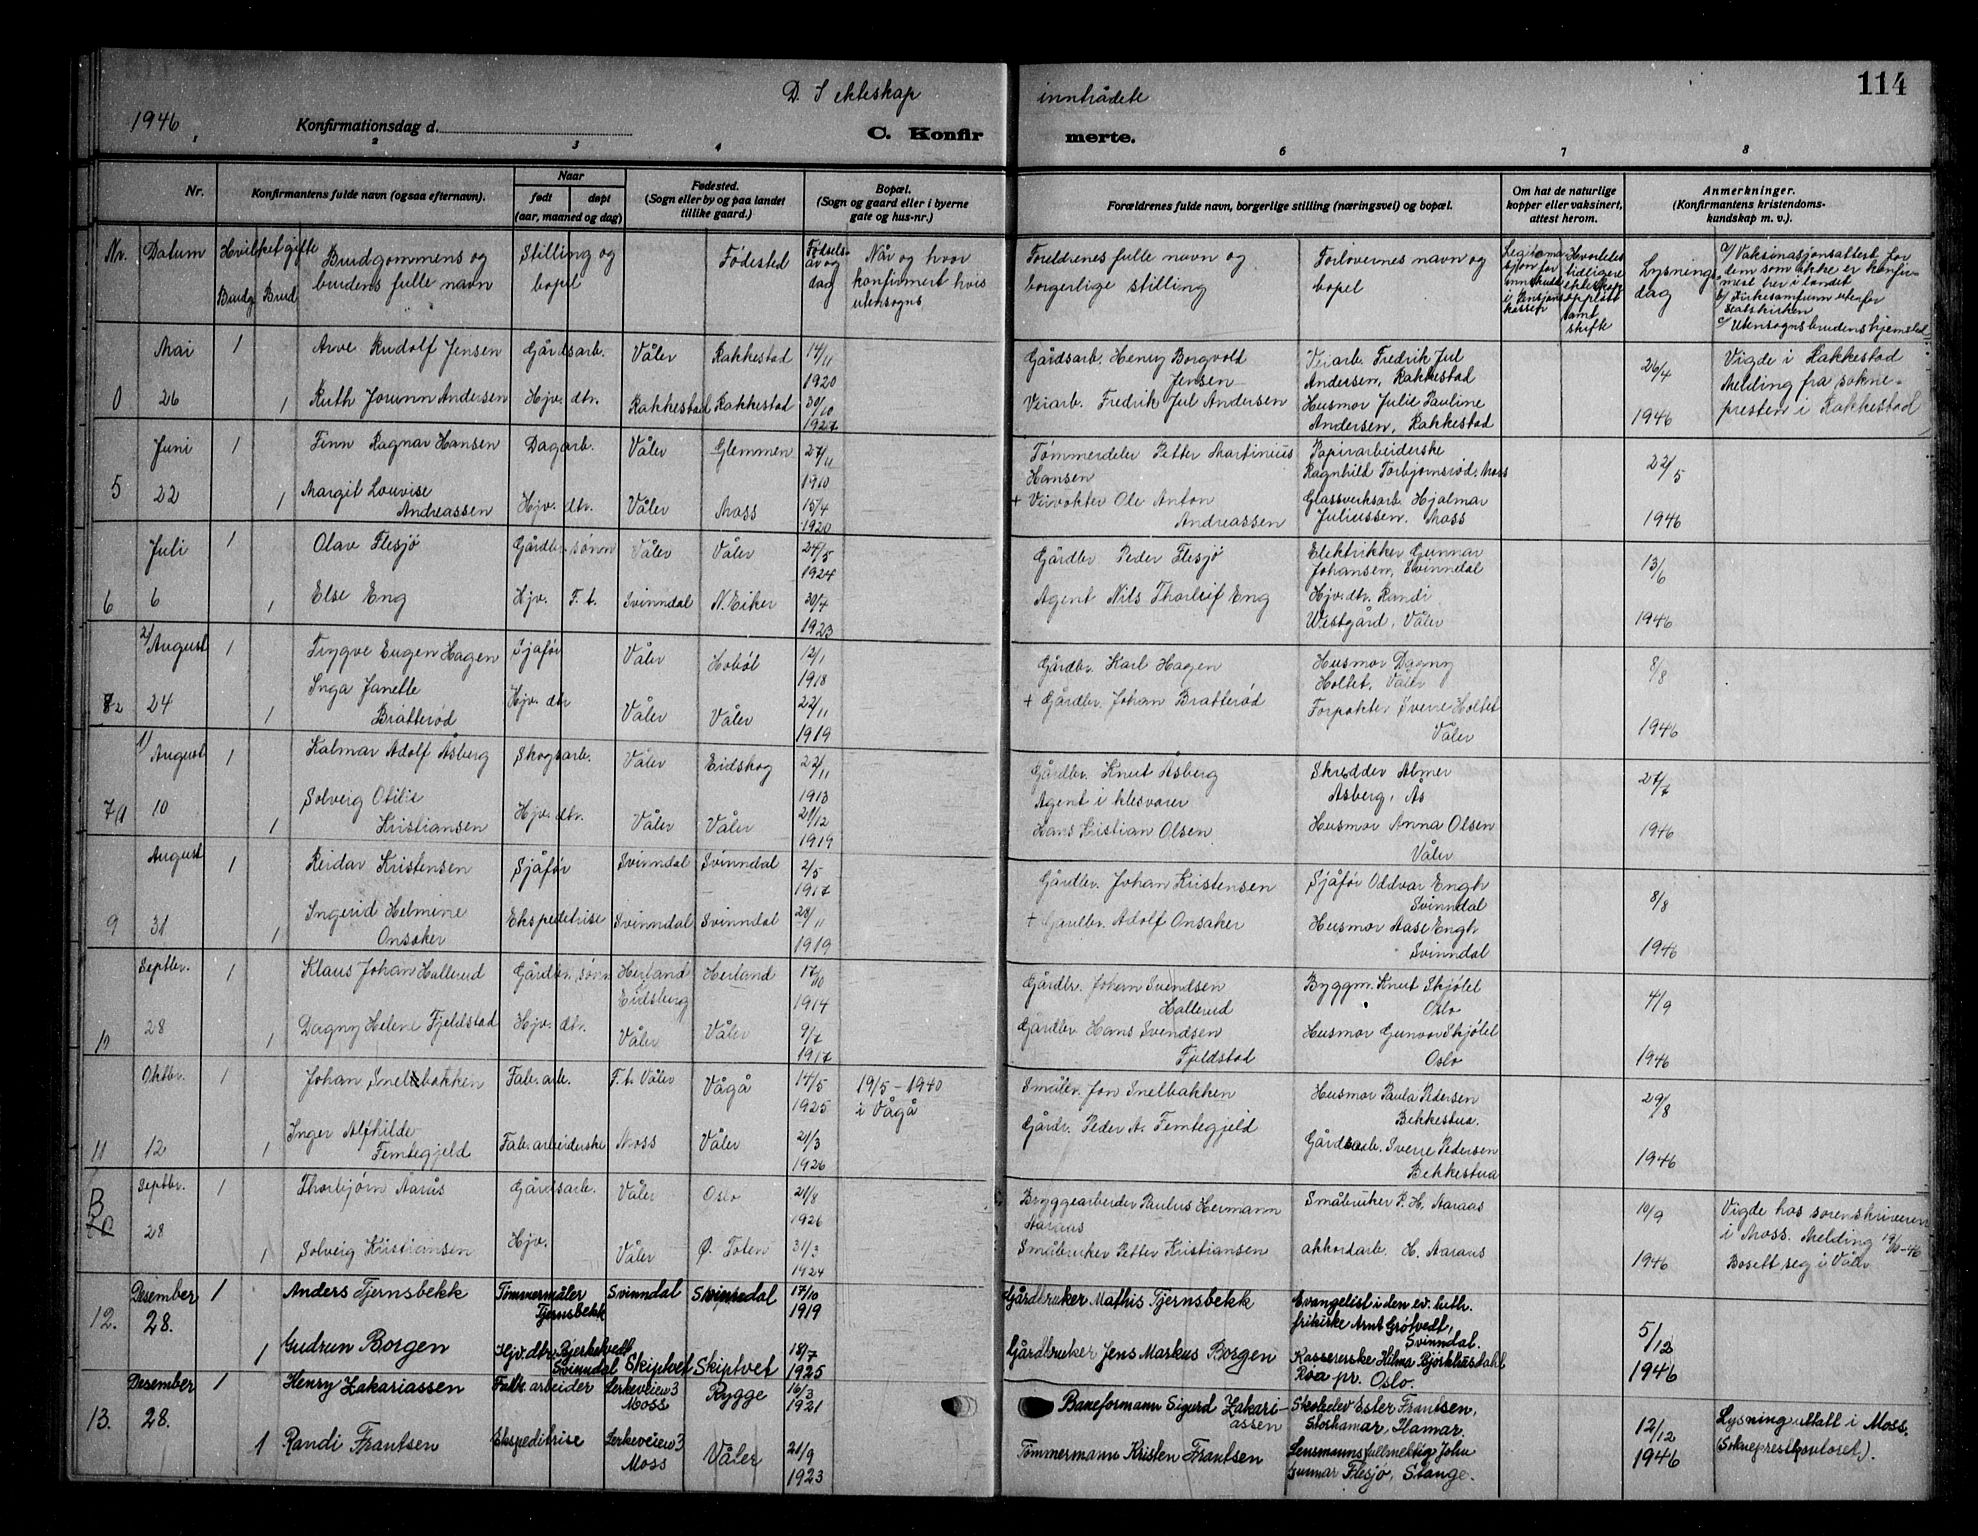 1946
D. I ekteskap inntrådete
114
Konfirmationsdag d.
C. Konfirmerte.
1 2 3 4 6 7 8
Nr.
Konfirmantens fulde navn (ogsaa efternavn).
Naar
født døpt
(aar, maaned og dag)
Fødested.
(Sogn eller by og paa landet
tillike gaard.)
Bopæl.
(Sogn og gaard eller i byerne
gate og hus-nr.)
Forældrenes fulde navn, borgerlige stilling (næringsvei) og bopæl.
Om hat de naturlige
kopper eller vaksinert,
attest herom.
Anmerkninger.
(Konfirmantens kristendoms-
kundskap m. v.).
Nr. Datum Hvilket gifte
Brudg. Brud
Brudgommens og
brudens fulle navn
Stilling og
bopel
Fødested
Fødsels-
år og
dag
Når og hvor
konfirmert hvis
utensogns
Foreldrenes fulle navn og
borgerlige stilling
Forlovernes navn og
bopel
Lysnings-
dag
a/ Vaksinasjonsattest for
dem som ikke er konfir-
mert her i landet
b/ Kirkesamfunn utenfor
Statskirken
c/ Utensognsbrudens hjemsted
Mai 1 Arve Rudolf Jensen Gårdsarb. Våler Rakkestad 14/11 1920
Gårdsarb. Henry Borgvold
Jensen
Veiarb. Fredrik Jul
Andersen, Rakkestad
26/4
Vigde i Rakkestad
Melding fra sokne-
presten i Rakkestad
0 26 1 Ruth Jorunn Andersen Hjv. dtr. Rakkestad Rakkestad 30/10 1927
Veiarb. Fredrik Jul Andersen
Husmor Julie Pauline
Andersen, Rakkestad
1946
Juni 1 Finn Ragnar Hansen Dagarb. Våler Glemmen 27/11 1910
Tømmerdeler Petter Martinius
Hansen
Papirarbeiderske
Ragnhild Torbjørnsrød, Moss
22/5
5 22 1 Margit Louvise
Andreassen
Hjv. dtr. Våler Moss 15/4 1920
+ Veivokter Ole Anton
Andreassen
Glassverksarb. Hjalmar
Juliussen. Moss
1946
Juli 1 Olav Flesjø Gårdbr. sønn Våler Våler 24/5 1924
Gårdbr. Peder Flesjø
Elektrikker Gunnar
Johansen, Svinndal
13/6
6 6 1 Else Eng Hjv. F. t. Svinndal N. Eiker 30/4 1923
Agent Nils Thorleif Eng
Hjv. dtr. Randi
Westgård, Våler
1946
2/ August 1 Trygve Eugen Hagen Sjåfør Våler Hobøl 12/1 1918
Gårdbr. Karl Hagen
Husmor Dagny
Holtet, Våler
8/8
82 24 1 Inga Janette
Bratterød
Hjv. dtr Våler Våler 22/11 1919
+ Gårdbr. Johan Bratterød
Forpakter Sverre Holtet
Våler
1946
1/ August 1 Kalmar Adolf Åsberg Skogsarb. Våler Eidskog 22/11 1913
Gårdbr. Knut Åsberg
Skredder Almer
Åsberg, Ås
27/7
7/1 10 1 Solveig Otilie
Kristiansen
Hjv. dtr. Våler Våler 21/12 1919
Agent i klesvarer
Hans Kristian Olsen
Husmor Anna Olsen
Våler
1946
August 1 Reidar Kristensen Sjåfør Svinndal Svinndal 2/5 1917
Gårdbr. Johan Kristensen
Sjåfør Oddvar Engh
Svinndal
8/8
9 31 1 Ingerid Helmine
Onsaker
Ekspeditrise Svinndal Svinndal 28/11 1919
+ Gårdbr. Adolf Onsaker
Husmor Aase Engh
Svinndal
1946
Septbr. 1 Klaus Johan Hallerud Gårdbr. sønn Herland
Eidsberg
Herland 17/10 1914
Gårdbr. Johann Svendsen
Hallerud
Byggm. Knut Skjølel
Oslo
4/9
10 28 1 Dagny Helene Fjeldstad Hjv. dtr. Våler Våler 9/7 1917
Gårdbr Hans Svendsen
Fjeldstad
Husmor Gunvor Skjølel
Oslo
1946
Oktbr. 1 Johan Snelbakken Fab. arb. F. t. Våler Vågå 14/5 1925 19/5 - 1940
i Vågå
Småbr. Jon Snelbakken
Husmor Paula Pedersen
Bekkestua.
29/8
11 12 1 Inger Alfhilde
Femtegjeld
Fab. arbeiderske Moss Våler 21/3 1926
Gårdr. Peder A. Femtegjeld
Gårdsarb. Sverre Pedersen
Bekkestua
1946
Septbr. 1 Thorbjørn Aarås Gårdsarb. Våler Oslo 21/8 1926
Bryggearbeider Paulus Hermann
Aaraas
Småbruker P. H. Aaraas
10/9
Vigde hos sorenskriveren
i Moss. Melding
Bosett seg i Våler
B
28 1 Solveig Kristiansen Hjv. Våler Ø. Toten 31/3 1924
Småbruker Petter Kristiansen
akkordarb. H. Aaraas
1946
Desember 1 Anders Tjernsbekk Tømmermåler
Tjernsbekk
Svinndal Svinndal 17/10 1919
Gårdbruker Mathis Tjernsbekk
Evangelist i den ev. luth.
frikirke Arnt Grøtvedt,
Svinndal.
5/12
12. 28. 1 Gudrun Borgen Hjv. dtr. Bjerkekvedt
Svinndal
Skiptvet Skiptvet 18/7 1925
Gårdbruker Jens Markus Borgen
Kassererske Hilma
Roa pr. Oslo.
1946
Desember 1 Henry Zakariassen Fabr. arbeider Lerkeveien 3
Moss
Rygge 16/3 1921
Baneformann Sigurd Zakari-
assen
Skoleelev Ester Frantsen,
Storhamar, Hamar.
12/12
Lysning uttatt i Moss.
(Sokneprestkontoret).
13. 28. 1 Randi Frantsen Ekspeditrise Lerkeveien 3
Moss
Våler 21/9 1923
Tømmermann Kristen Frantsen
Lensmannsfullmektig John
Gunnar Flesjø, Stange.
1946